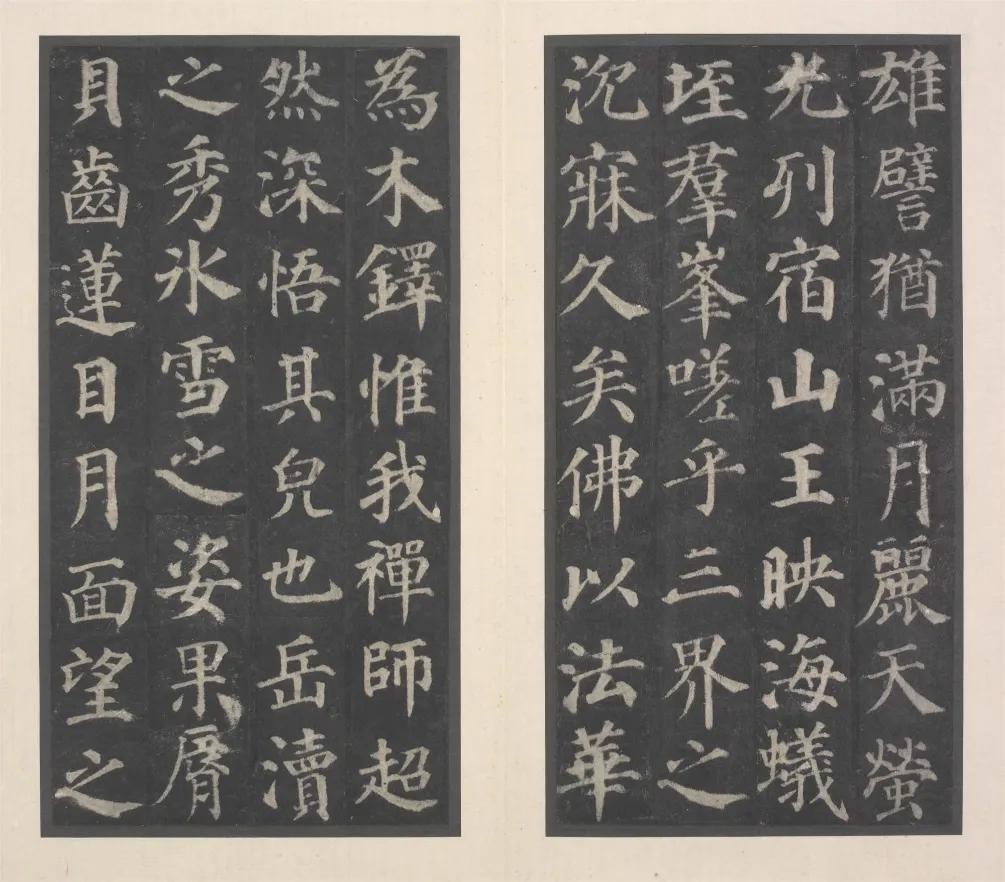 雄譬猶滿月麗天螢
光列宿山王映海蟻
垤羣峯嗟乎三界之
沉寐久矣佛以法華
為木鐸惟我禪師超
然深悟其皃也岳瀆
之秀氷雪之姿果脣
貝齒蓮目月面望之